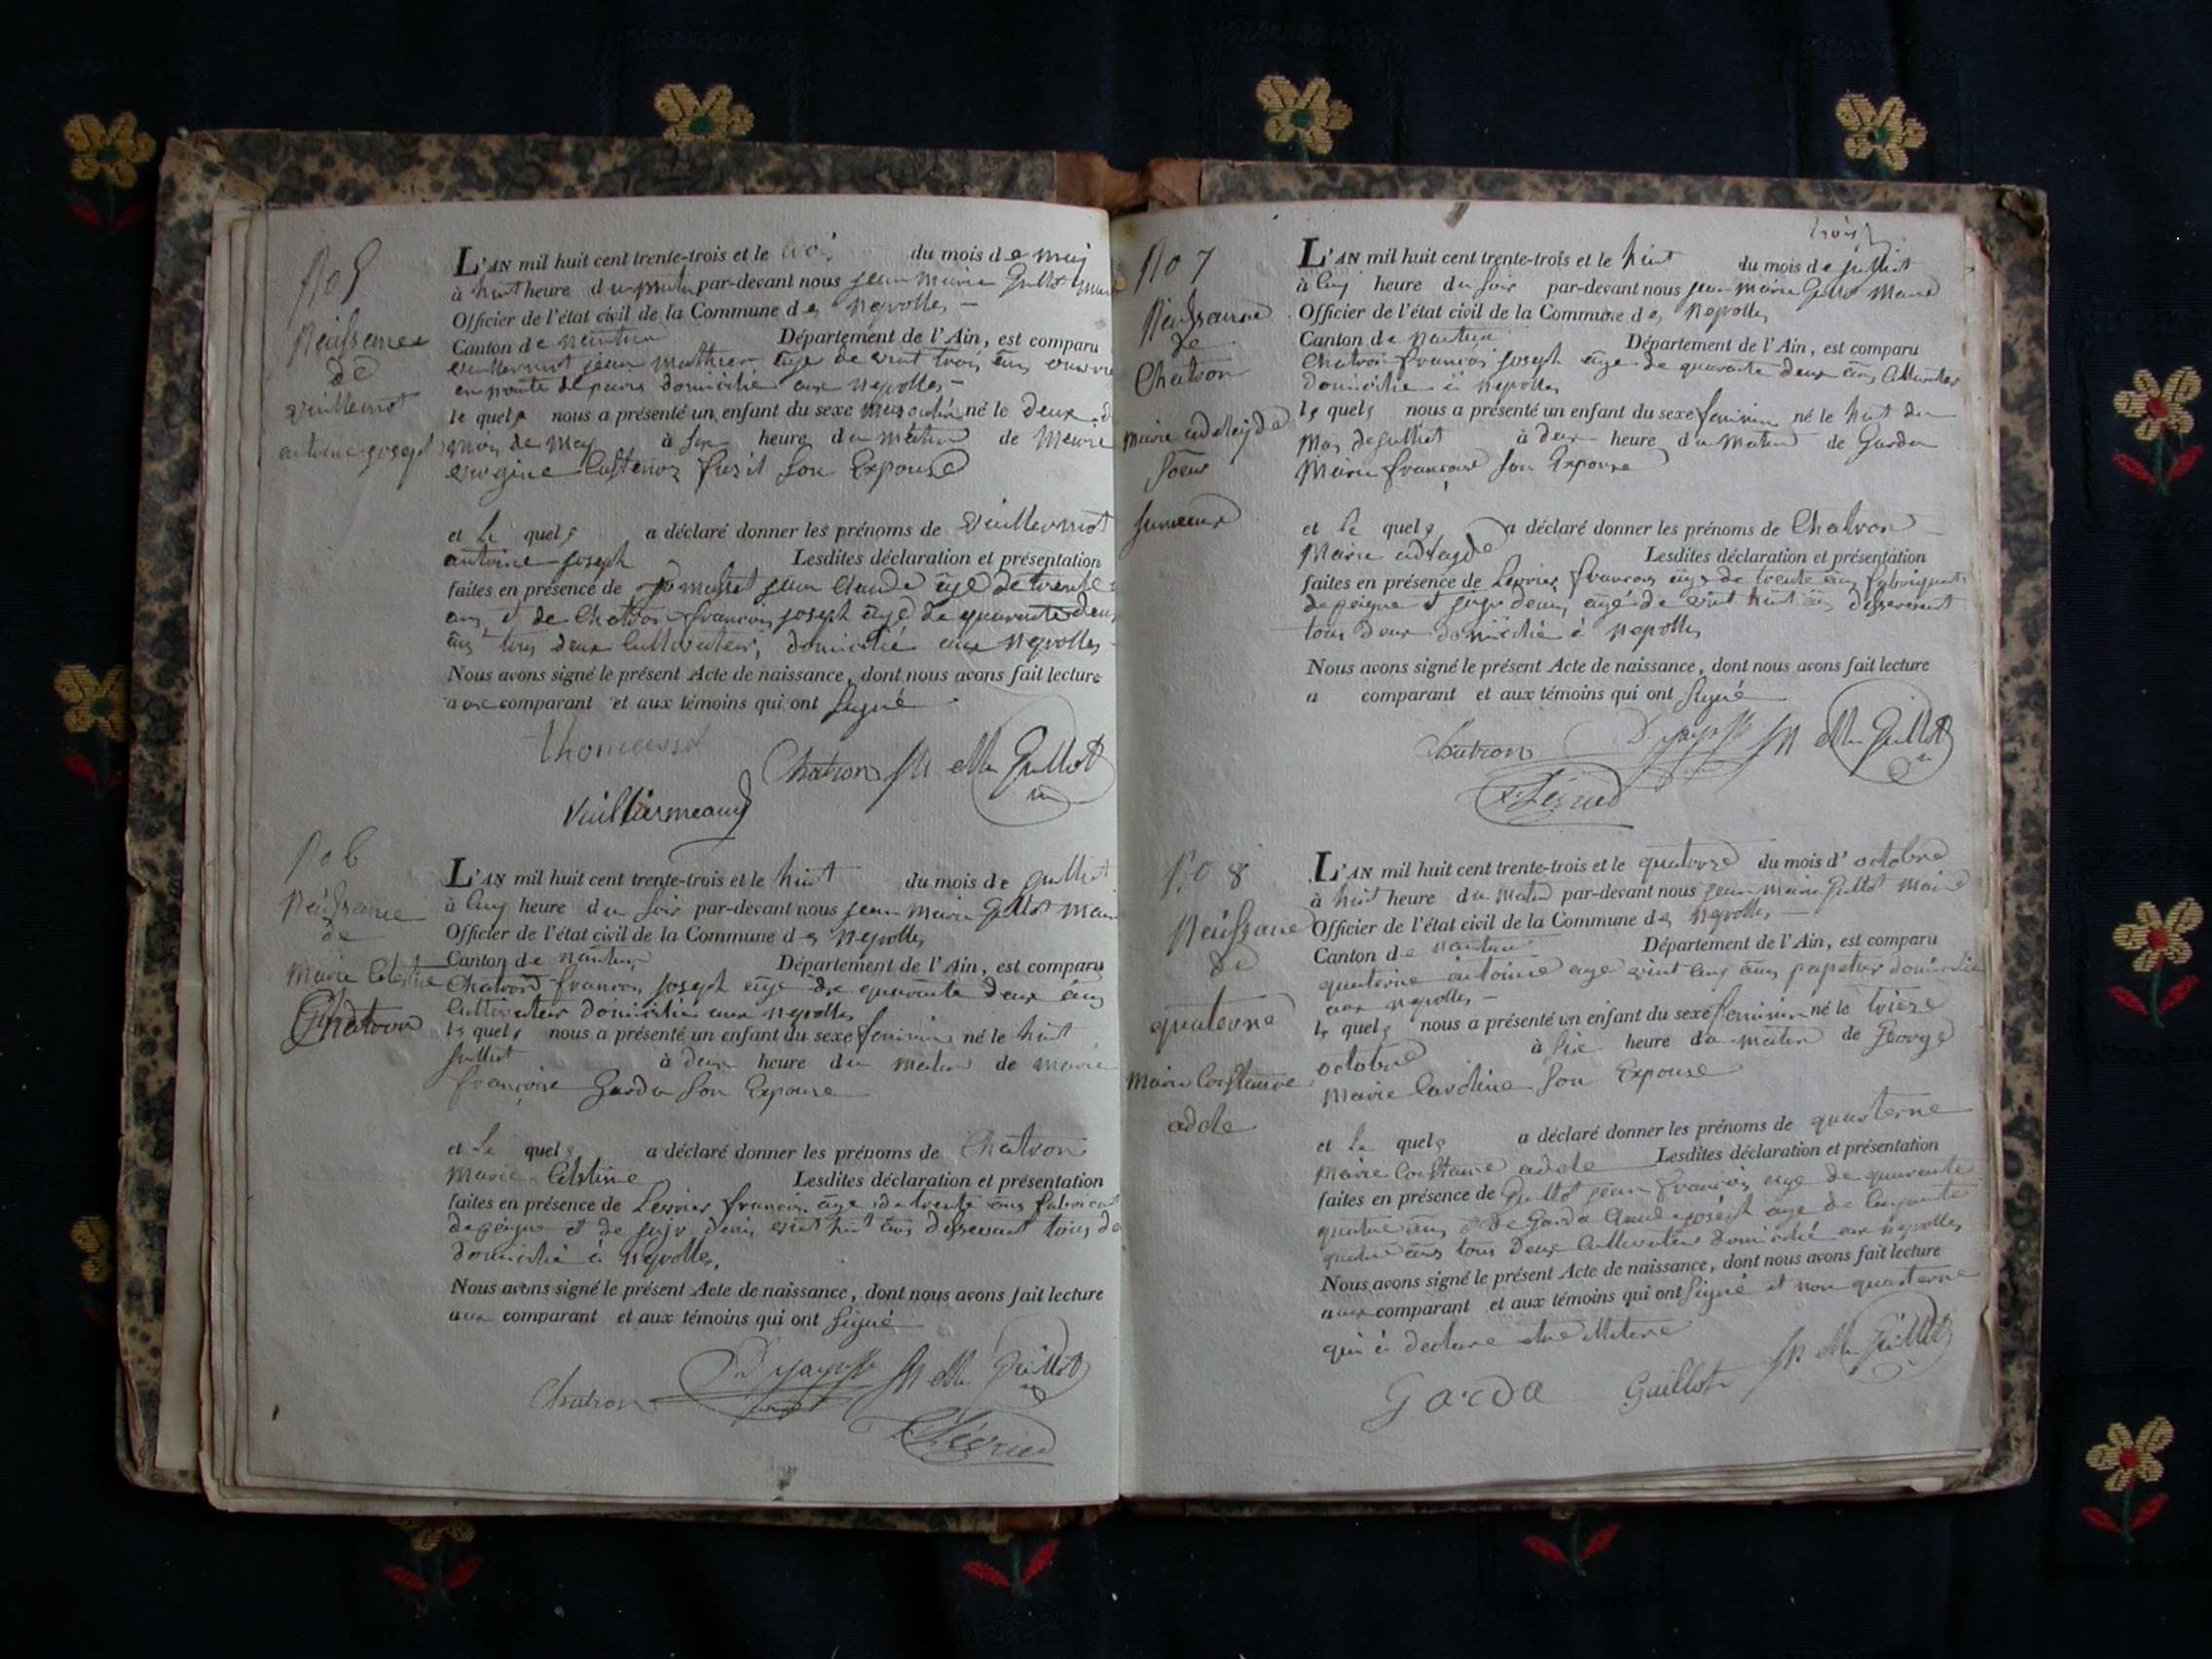 No 5
Naissance
de
Vuillermot
antoine joseph
L'AN mil huit cent trente-trois et le trois du mois de may
à huit heure du matin par-devant nous jean marie Guillot
Officier de l'état civil de la Commune des neyrolles
Canton de nantua Département de l'Ain, est comparu
Vuillermot jean mathieu âgé de vint trois ans
domicilié aux neyrolles
le quel nous a présenté un enfant du sexe masculin né le deux d
mois de may à six heures du matin de Marie
Son Expouse
et le quel a déclaré donner les prénoms de Vuillermot
antoine joseph Lesdites déclaration et présentation
faites en présence de jean Claude âgé de trente
ans et de Chatron françois joseph âgé de quarante deux
ans tous deux Cultivateur, domicilié aux neyrolles
Nous avons signé le présent Acte de naissance, dont nous avons fait lecture
aux comparant et aux témoins qui ont Signé
thomasset
Chatron JM Guillot
Vuilliermeaux
No 6
Naissance
de
Marie Celestine
Chatron
L'AN mil huit cent trente-trois et le huit du mois de juilliet
à Cinq heure du soir par-devant nous jean marie Guillot
Officier de l'état civil de la Commune des neyrolles
Canton de nantua Département de l'Ain, est comparu
Chatron françois joseph âgé de quarante deux ans
Cultivateur domicilié aux neyrolles
le quel nous a présenté un enfant du sexe feminin né le huit
juilliet à deux heure du matin de marie
françoise Garda Son Expouse
et le quel a déclaré donner les prénoms de Chatron
Marie Celestine Lesdites déclaration et présentation
faites en présence de Levrier françois âgé de trente ans fabricant
de peigne et de denis vint huit ans tous
domicilié à neyrolles,
Nous avons signé le présent Acte de naissance, dont nous avons fait lecture
aux comparant et aux témoins qui ont Signé
Chatron JM Guillot
No 7
Naissance
de
Chatron
Marie adelayde
Soeur
jumeau
L'AN mil huit cent trente-trois et le huit du mois de juilliet
à Cinq heure du soir par-devant nous jean marie Guillot Maire
Officier de l'état civil de la Commune des Neyrolles
Canton de nantua Département de l'Ain, est comparu
Chatron françois joseph âgé de quarante deux ans Cultivateur
domicilié à neyrolles
le quel nous a présenté un enfant du sexe feminin né le huit du
Mois de juilliet à deux heure du matin de Garda
Marie françoise Son Expouse
et le quel a déclaré donner les prénoms de Chatron
Marie adelayde Lesdites déclaration et présentation
faites en présence de Levrier françois âgé de trente ans fabriquant
de peigne et denis âgé de vint huit ans
tous deux domicilié à neyrolles
Nous avons signé le présent Acte de naissance, dont nous avons fait lecture
a comparant et aux témoins qui ont Signé
Chatron JM Guillot
No 8
Naissance
de
quaterne
Marie Constance
adele
L'AN mil huit cent trente-trois et le quatorze du mois d'octobre
à huit heure du matin par-devant nous jean marie Guillot Maire
Officier de l'état civil de la Commune des neyrolles
Canton de nantua Département de l'Ain, est comparu
quaterne antoine age vint Cinq ans papetier domicilié
aux neyrolles
le quel nous a présenté un enfant du sexe feminin né le treize
octobre à Six heure du matin de George
Marie Caroline Son Expouse
et le quel a déclaré donner les prénoms de quaterne
Marie Constance adele Lesdites déclaration et présentation
faites en présence de Guillot jean françois age de quarante
quatre ans et de Garda Claude joseph age de Cinquante
quatre ans tous deux Cultivateur domicilié aux neyrolles
Nous avons signé le présent Acte de naissance, dont nous avons fait lecture
aux comparant et aux témoins qui ont Signé et non quaterne
qui à declare
Garda Guillot JM Guillot